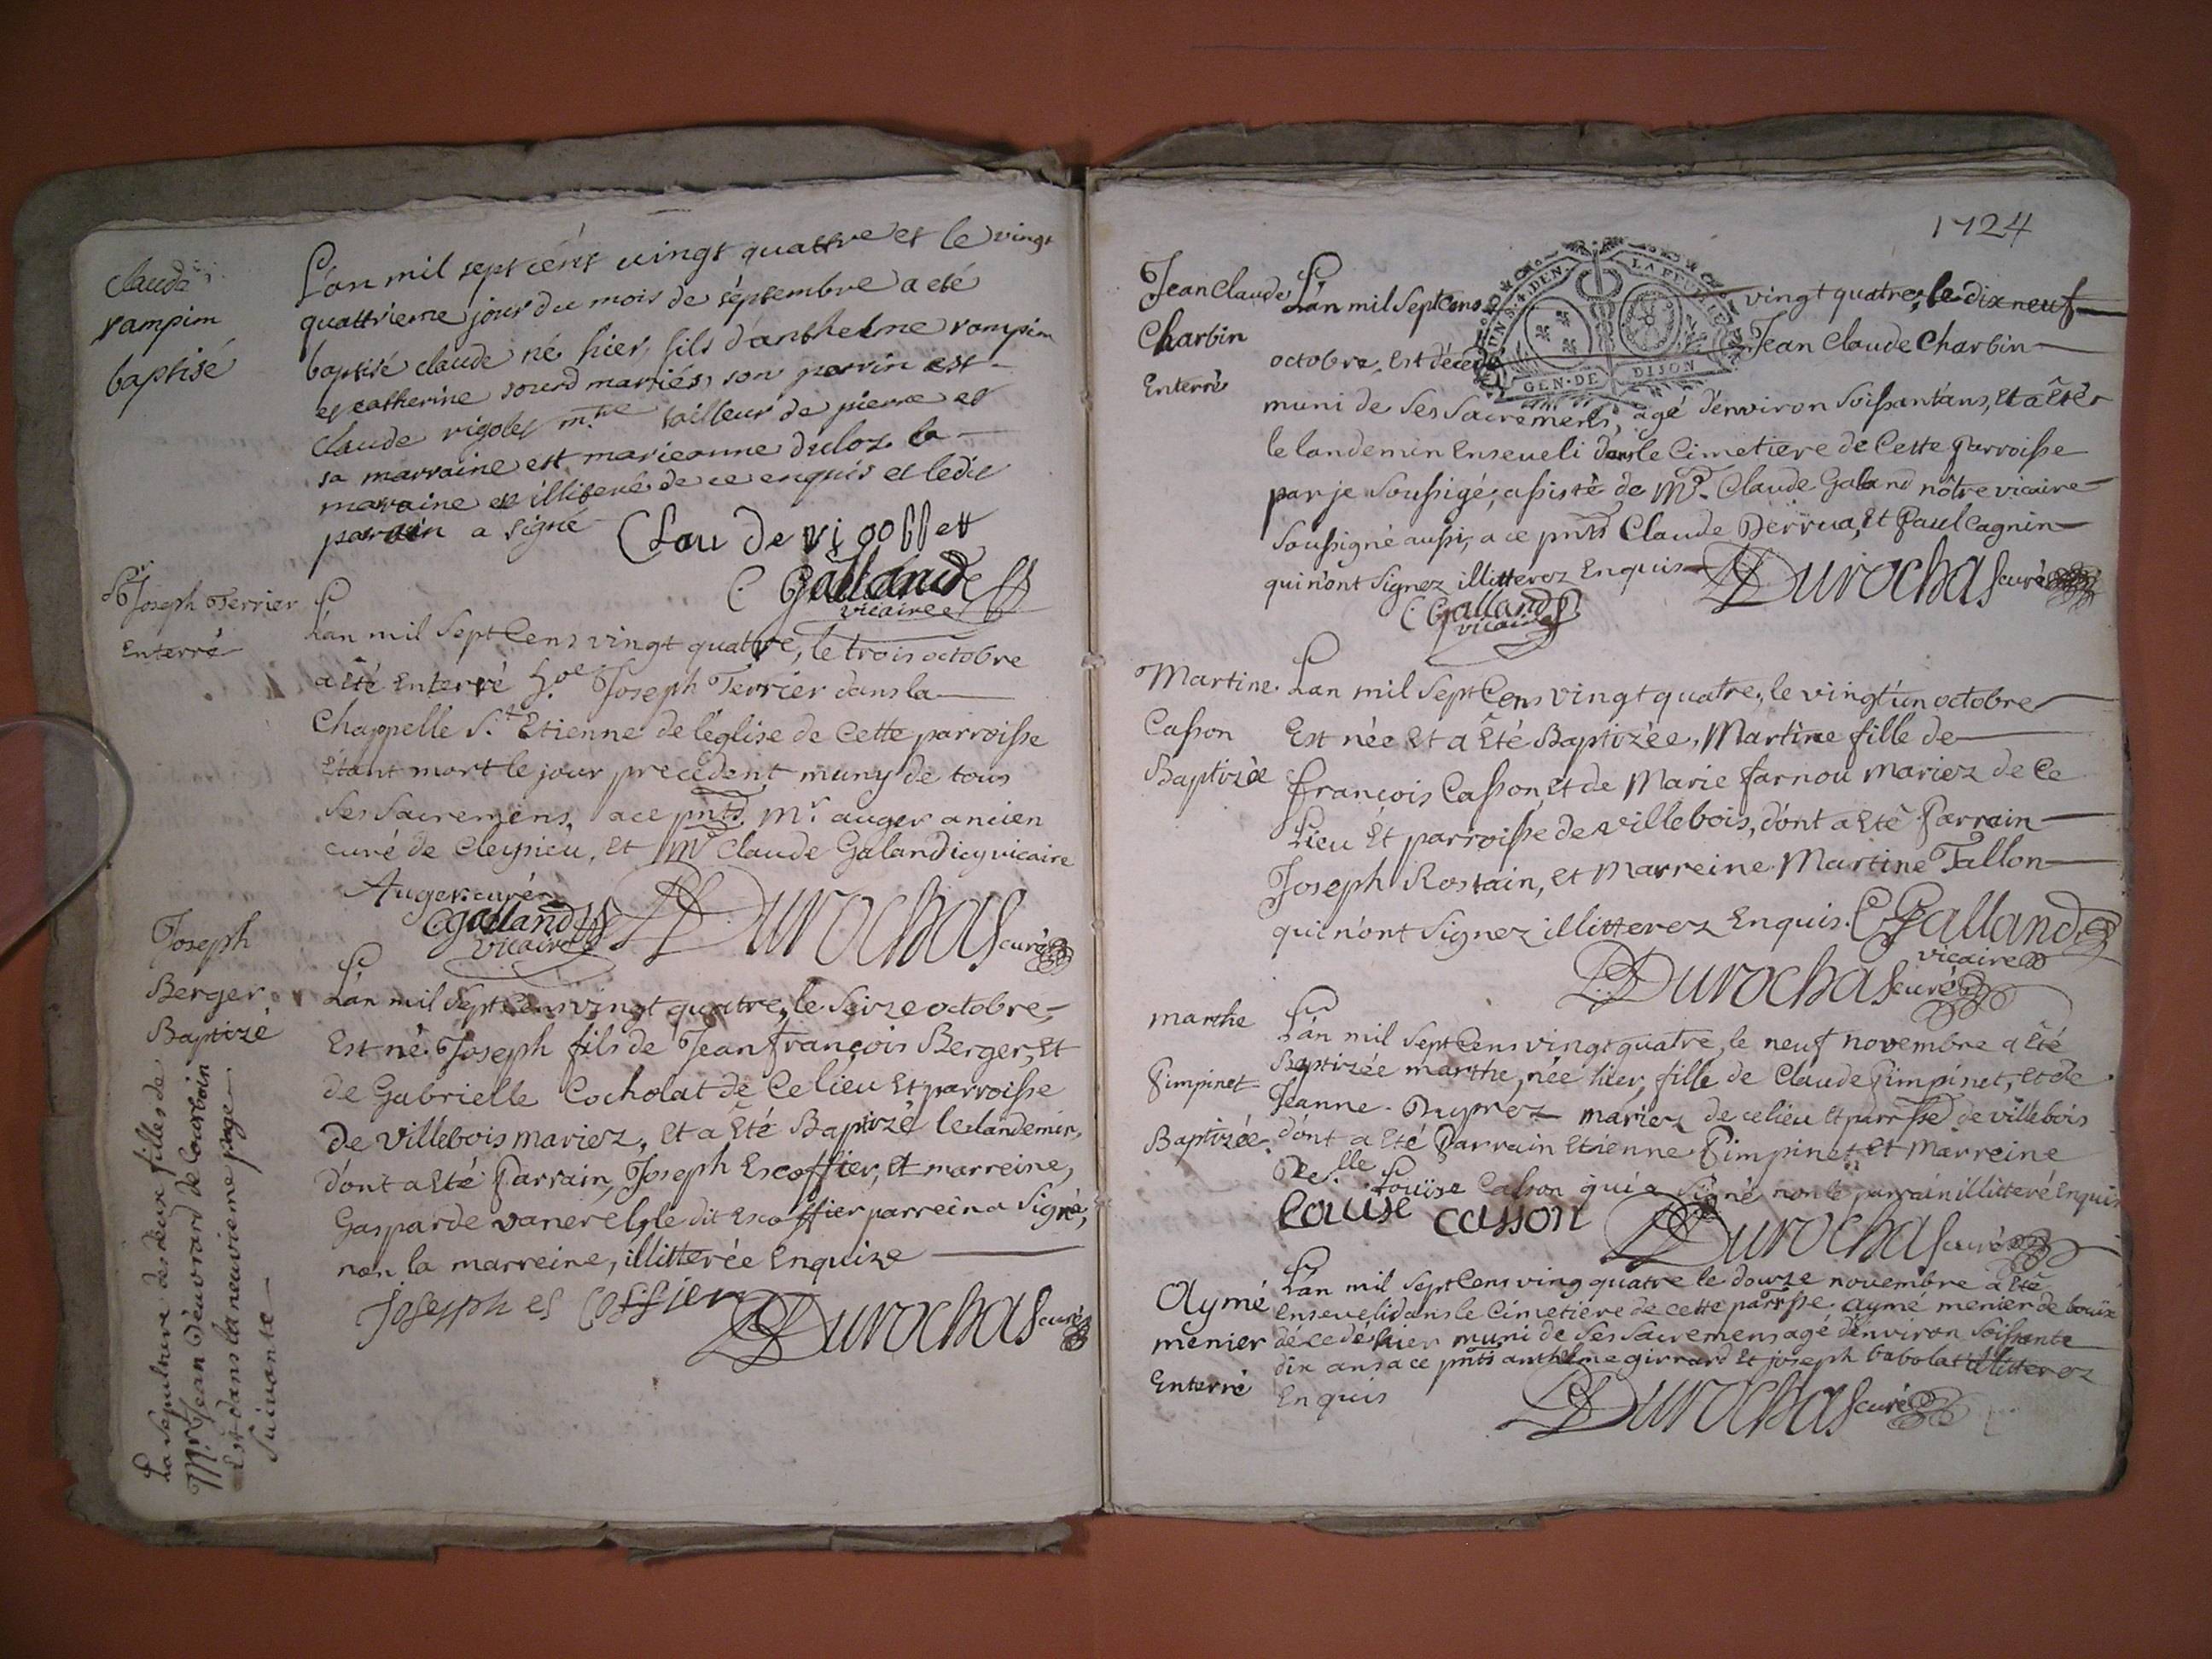 Claude
rampim
baptisé
L'an mil sept cent vingt quattre et le vingt
quattrieme jour du mois de septembre a eté
baptisé claude né hier, fils d'anthelme rampim
et catherine sourd mariés, son parrin est
claude rigolet m.tre tailleur de pierre et
sa marraine est marieanne duloz la
maraine est illiteré de ce enquis et ledit
parain a signé
C Galland
vicaire
Sr Joseph Terrier
Enterré
L'an mil Sept Cens vingt quatre, le trois octobre
a Eté Enterré Joseph Terrier dans la
Chappelle St. Etienne de l'église de Cette parroisse
Etant mort le jour precedent muny de tous
Ses Sacremens, a ce pnts Mr. auger ancien
curé de Cleysieu, Et Mr Claude Galand icy vicaire
Auger curé
C Galland
vicaire
Durochas curé
Joseph
Berger
Baptizé
L'an mil Sept Cens vingt quatre, le Seize octobre,
Est né Joseph fils de Jean françois Berger, Et
de Gabrielle Cocholat de Ce lieu Et parroisse
de Villebois mariez, Et a Eté Baptizé le landemin,
d'ont a Eté Parrain, Joseph Escoffier, Et marreine,
Gasparde vanerel, le dit Escoffier parrein a Signé,
non la marreine, illitterée Enquize
Joseph es Coffier
Durochas curé
La Sepulture des deux filles de
Mr Jean Deuvrard de Courbain
Est dans la neuvieme page
Suivante
1724
Jean Claude
Charbin
Enterré
GEN. DE DIJON
L'an mil Sept Cens vingt quatre, le dix neuf
octobre, Est décedé Jean Claude Charbin
muni de Ses Sacremens, agé d'environ Soissant'ans, Et a Eté
le landemin Enseveli dans le Cimetiere de Cette Parroisse
par je Soussigé, assisté de Mr. Claude Galand nôtre vicaire
Soussigné aussi, a ce pnts Claude Derrua, Et Paul Cagnin
qui n'ont Signez illitterez Enquis
Durochas curé
C Galland
vicaire
Martine
Casson
Baptizée
L'an mil Sept Cens vingt quatre, le vingt'un octobre
Est née Et a Eté Baptizée, Martine fille de
françois Casson, Et de Marie farnou Mariez de Ce
Lieu Et parroisse de villebois, d'ont a Eté Parrain
Joseph Rostain, Et Marreine Martine Tallon
qui n'ont Signez illitterez Enquis. C Galland
vicaire
Durochas curé
marthe
Pimpinet
Baptizée
L'an mil Sept Cens vingt quatre, le neuf novembre a Eté
Baptizée marthe, née hier, fille de Claude Pimpinet, et de
Jeanne Duprez mariez de ce lieu Et parrsse de villebois
d'ont a Eté Parrain Etienne Pimpinet Et Marreine
De.lle Louise Casson qui a Signé non le parrain illitteré Enquis
Louise casson
Durochas curé
Aymé
menier
Enterré
L'an mil Sept Cens ving quatre le douze novembre a Eté
Enseveli dans le Cimetiere de cette parrsse aymé menier de bouix
décedé hier muni de Ses Sacremens agé d'environ Soissante
dix ans a ce pnts anthelme girrard Et joseph babolat illitterez
Enquis
Durochas curé